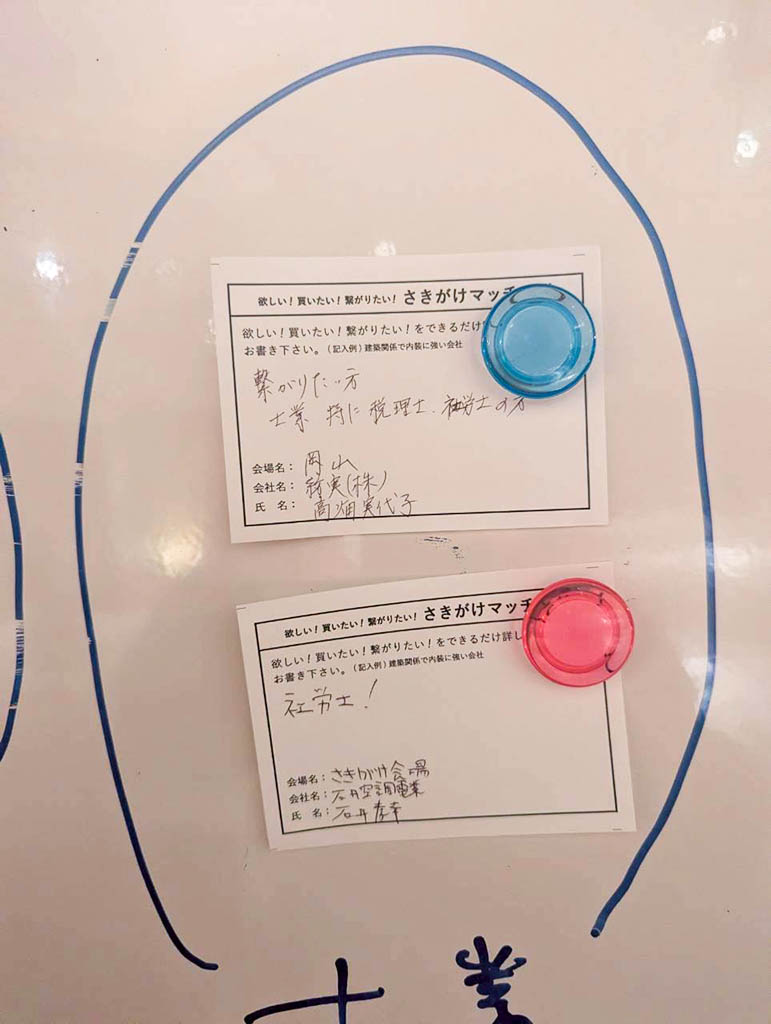 欲しい！買いたい！繋がりたい！ さきがけマッチ
欲しい！買いたい！繋がりたい！をできるだけ
お書き下さい。（記入例）建築関係で内装に強い会社
繋がりたい方
士業 特に 税理士、社労士の方
会場名： 岡山
会社名： 実(株)
氏 名： 高畑実代子
欲しい！買いたい！繋がりたい！ さきがけマッチ
欲しい！買いたい！繋がりたい！をできるだけ詳し
お書き下さい。（記入例）建築関係で内装に強い会社
社労士！
会場名： さきがけ会場
会社名： 石井空調電業
氏 名： 石井孝幸
士業